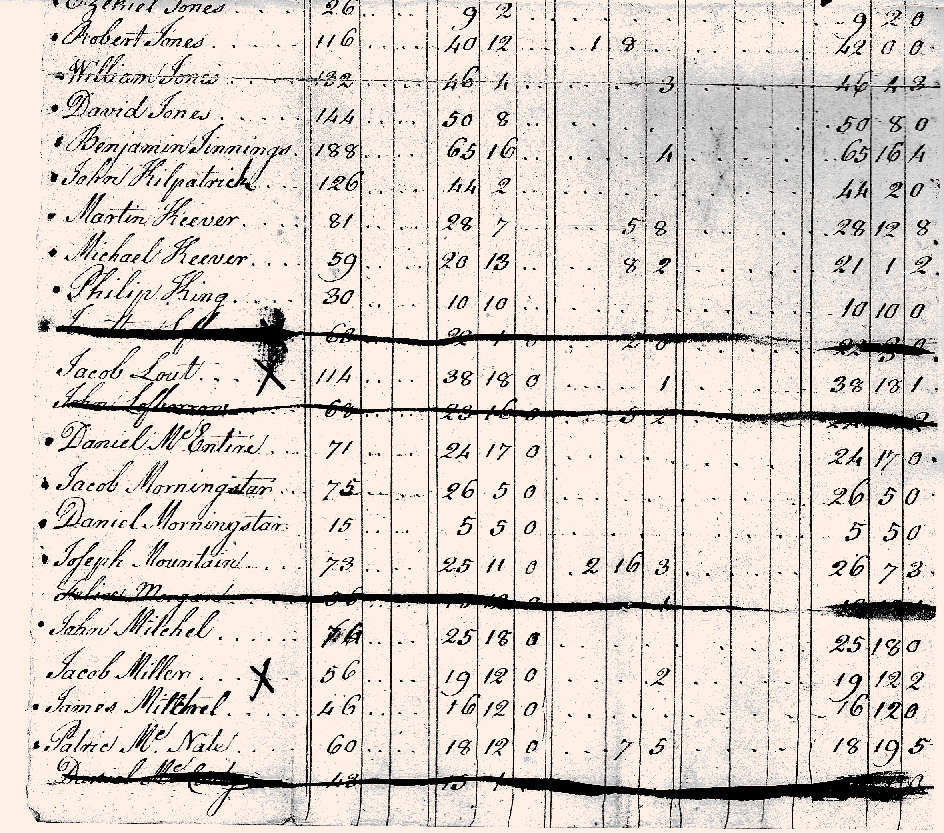 Ezekiel Jones 26 9 2 9 2 0
Robert Jones 116 40 12 1 8 42 0 0
William Jones 132 46 4 3 46 4 3
David Jones 144 50 8 50 8 0
Benjamin Jinnings 188 65 16 4 65 16 4
John Kilpatrick 126 44 2 44 2 0
Martin Keever 81 28 7 5 8 28 12 8
Michael Keever 59 20 13 8 2 21 1 2
Philip King 30 10 10 10 10 0
22
Jacob Lout X 114 38 18 0 1 38 18 1
John 68 23 16 0 5 2
Daniel McEntire 71 24 17 0 24 17 0
Jacob Morningstar 75 26 5 0 26 5 0
Daniel Morningstar 15 5 5 0 5 5 0
Joseph Mountain 73 25 11 0 2 16 3 26 7 3
Morgan
John Mitchel 25 18 0 25 18 0
Jacob Miller X 56 19 12 0 2 19 12 2
James Mitchel 46 16 12 0 16 12 0
Patric Mc Nale 60 18 12 0 7 5 18 19 5
Daniel